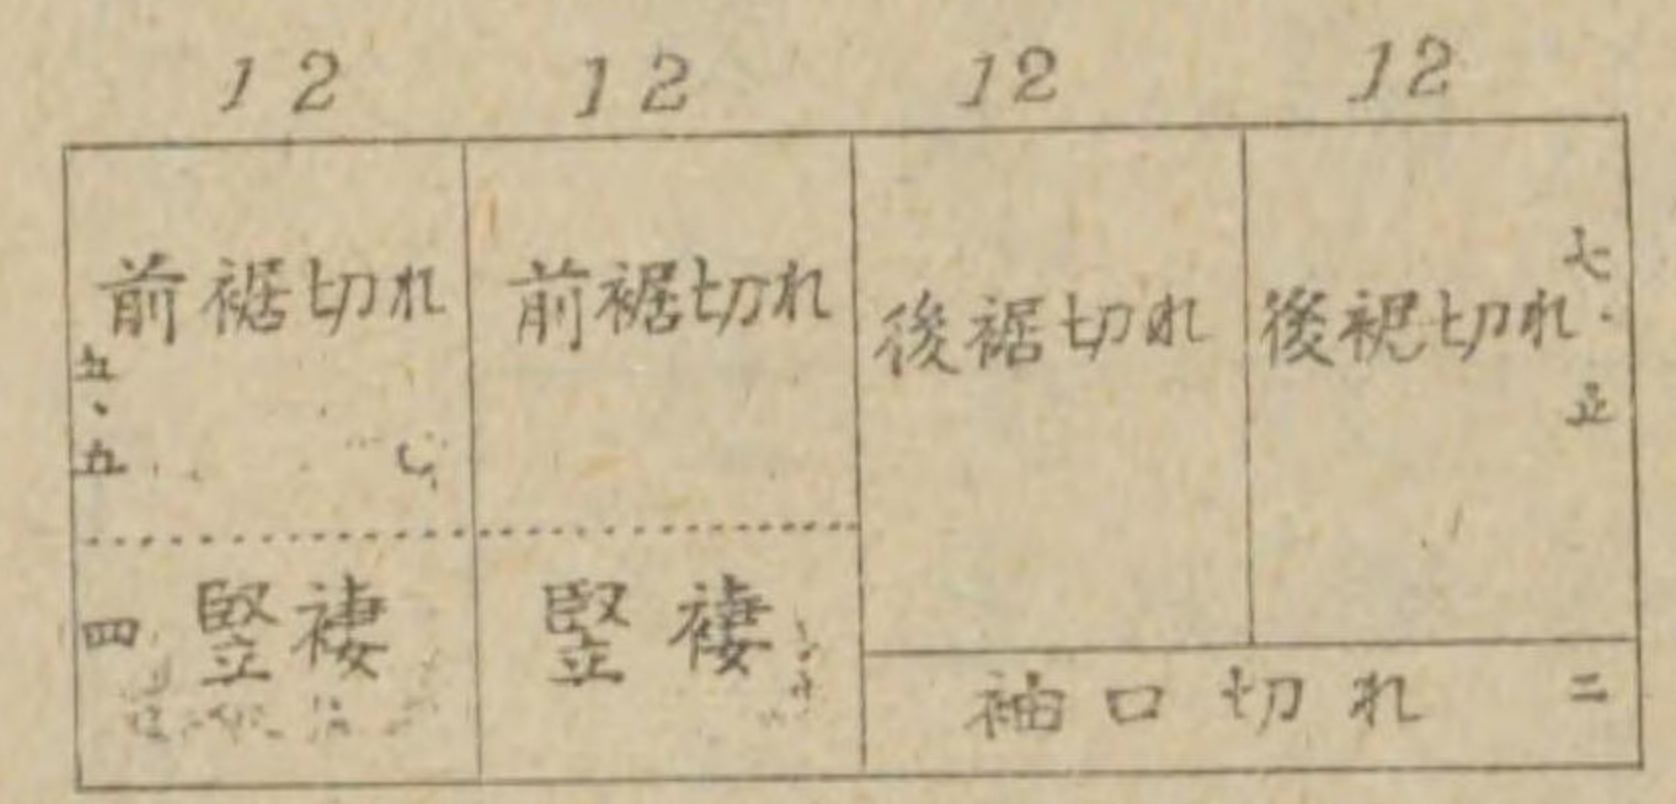 12 12 12 12
前裾切れ 前裾切れ 後裾切れ 後裾切れ
五・五
七・五
四 竪褄 竪褄
袖口切れ 二